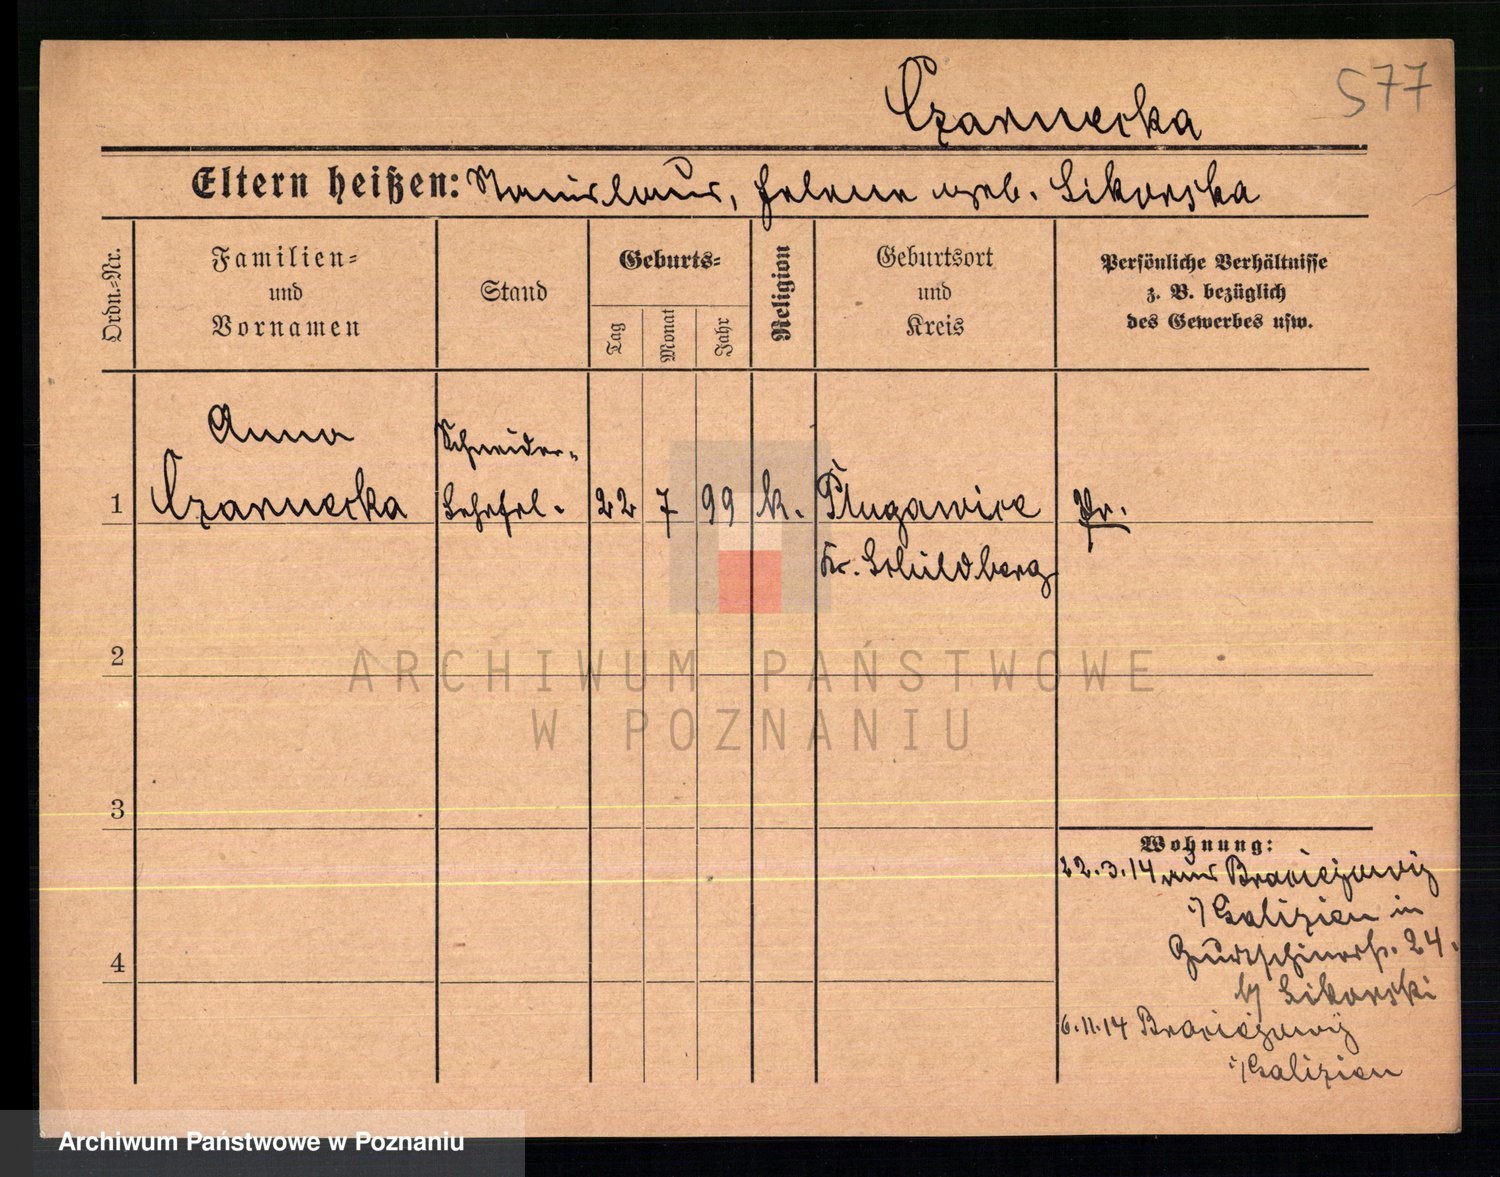 Czarnecka
577
Eltern heißen: Stanislaus, Helene geb. Sikorska
Ordn.-Nr.
Familien-
und
Vornamen
Stand
Geburts-
Tag
Monat
Jahr
Religion
Geburtsort
und
Kreis
Persönliche Verhältnisse
z. B. bezüglich
des Gewerbes usw.
Anna
Schneider-
1 Czarnecka Lehrfrl. 22 7 99 k. Plugawice Pr.
Kr. Schildberg
2
ARCHIWUM PAŃSTWOWE
W POZNANIU
3
Wohnung:
22.3.14 aus
i/ Galizien in
24.
4
b/ Sikorski
6.11.14
i/ Galizien
Archiwum Państwowe w Poznaniu